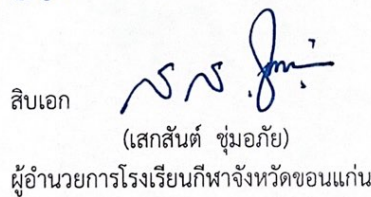 สิบเอก
(เสกสันต์ ชุ่มอภัย)
ผู้อำนวยการโรงเรียนกีฬาจังหวัดขอนแก่น